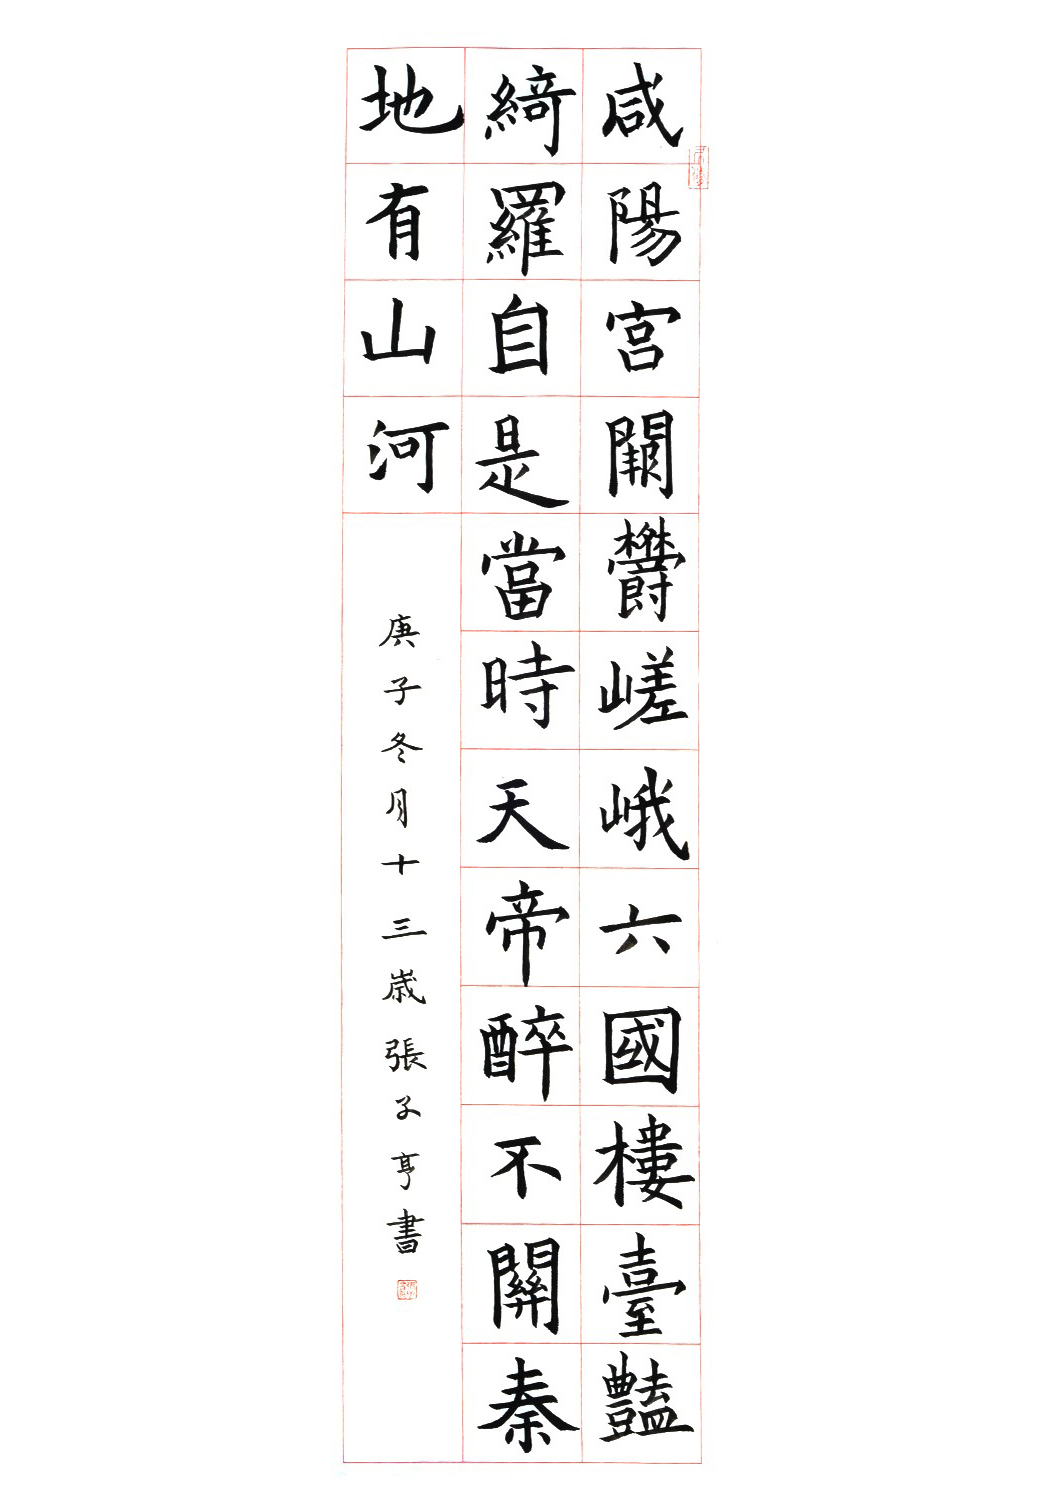 咸陽宮闕鬱嵯峨六國樓臺豔
綺羅自是當時天帝醉不關秦
地有山河
庚子冬月十三歲張子亨書